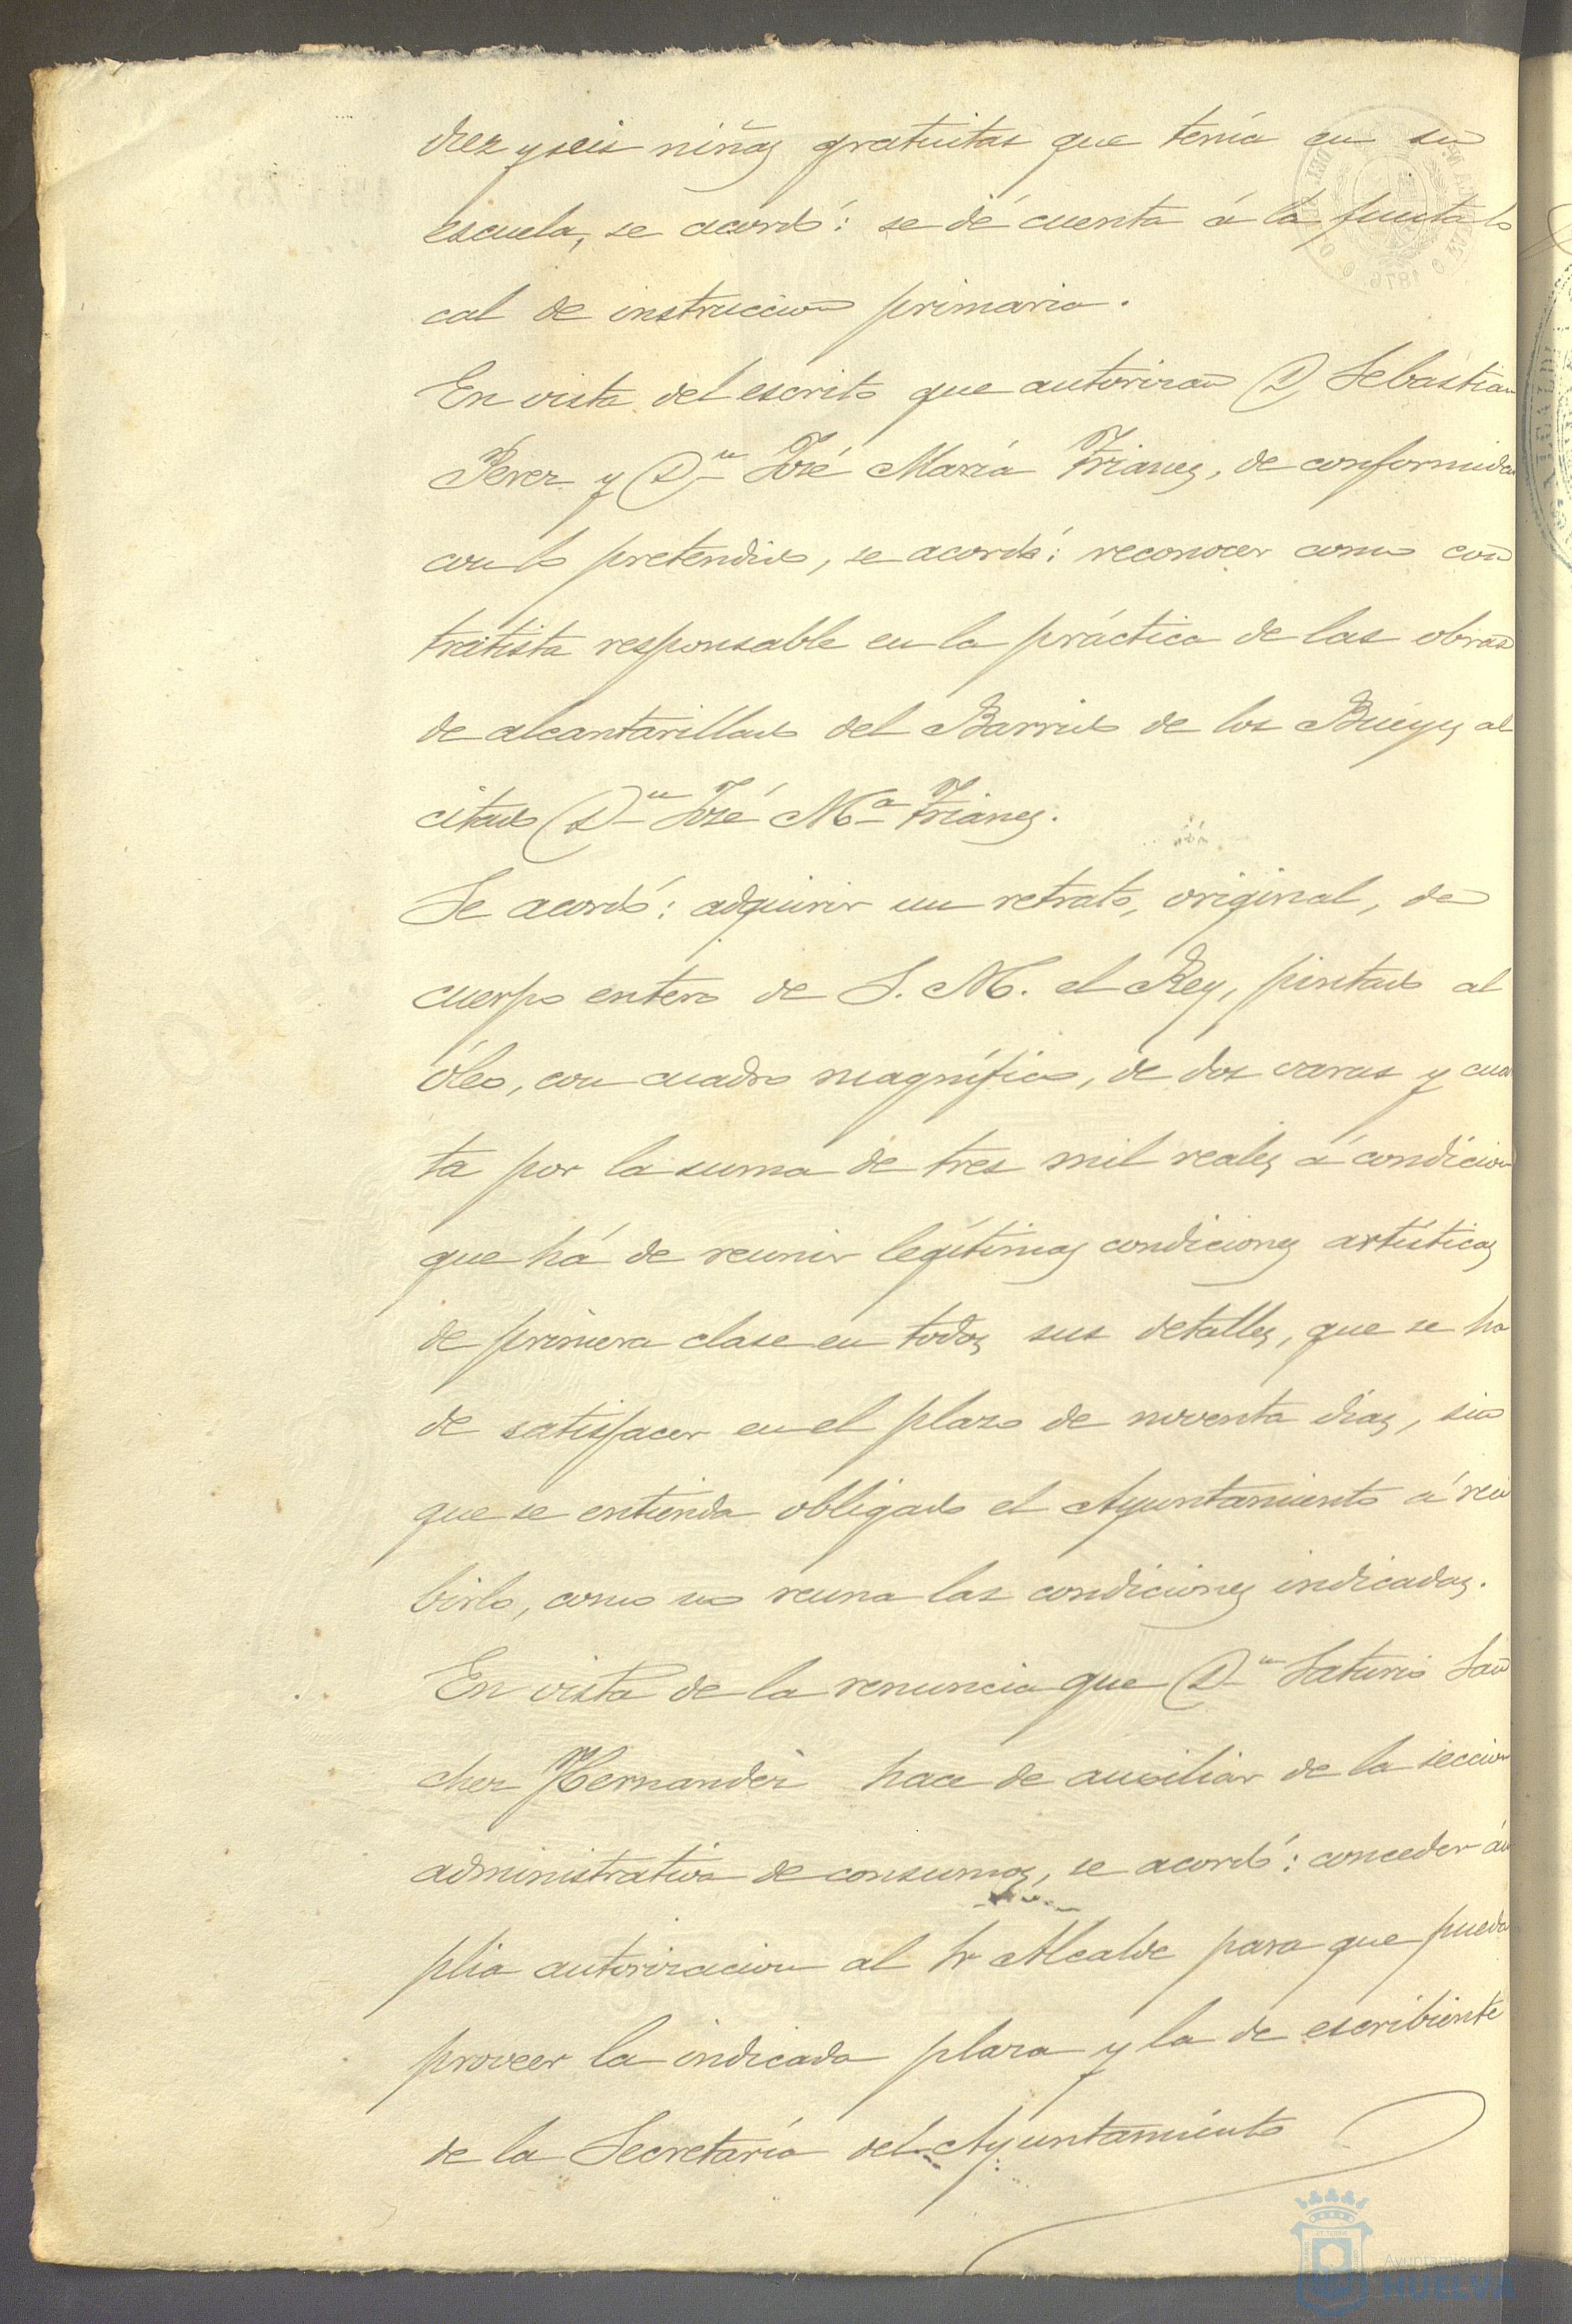 diez y seis niñas gratuitas que tenía en su
escuela, se acordó: se dé cuenta á la Junta lo
cal de instruccion primaria.
En vista del escrito que autorizan D. Sebastian
Perez y Dn José María Trianes, de conformidad
con lo pretendido, se acordó: reconocer como con
tratista responsable en la práctica de las obras
de alcantarillado del Barrio de los Bueyes al
citado Dn José Ma Trianes.
Se acordó: adquirir un retrato, original, de
cuerpo entero de S. M. el Rey, pintado al
óleo, con cuadro magnífico, de dos varas y cuar
ta por la suma de tres mil reales á condicion
que há de reunir legítimas condiciones artísticas
de primera clase en todos sus detalles, que se ha
de satisfacer en el plazo de noventa dias, sin
que se entienda obligado el Ayuntamiento á reci
birlo, como no reuna las condiciones indicadas.
En vista de la renuncia que Dn Saturio San
chez Hernandez hace de auxiliar de la seccion
administrativa de consumos, se acordó: conceder ám
plia autorizacion al Sr Alcalde para que pueda
proveer la indicada plaza y la de escribiente
de la Secretaría del Ayuntamiento
Ayuntamiento
HUELVA